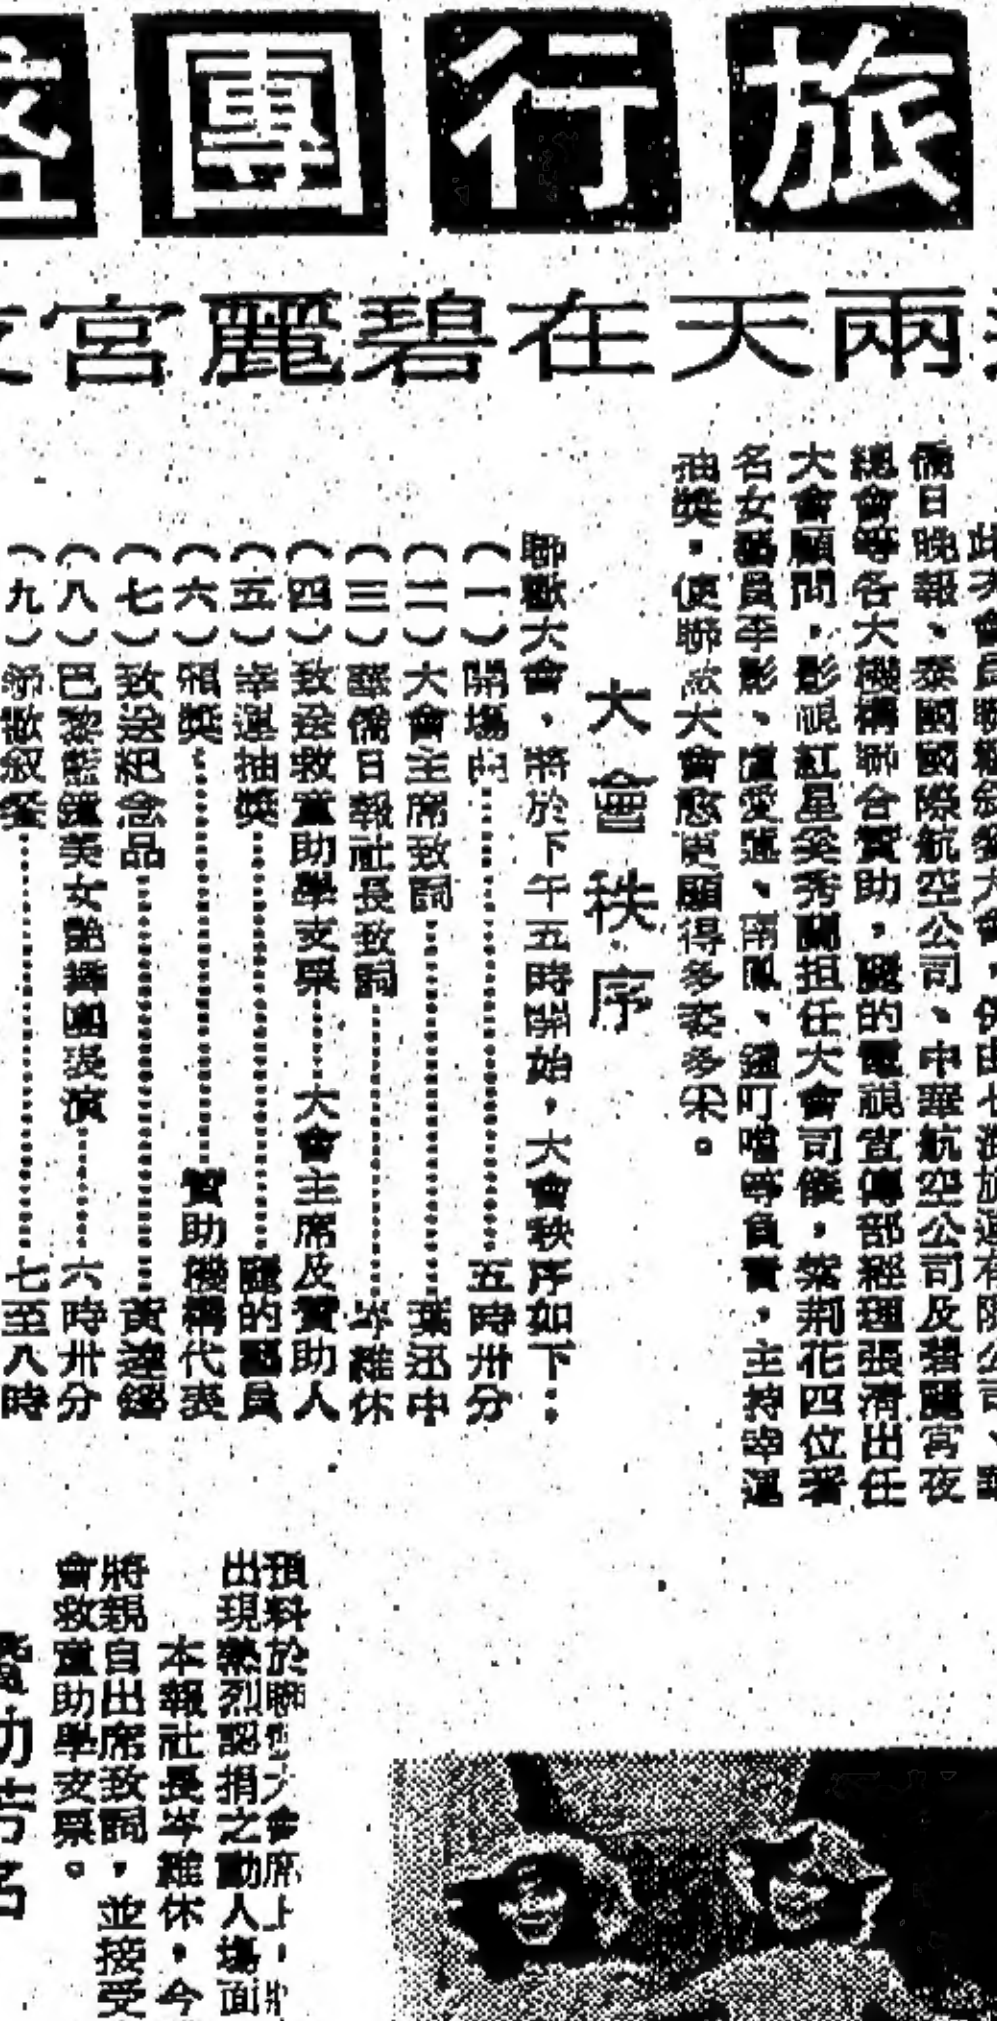 旅行團
兩天在碧麗宮
此次會員聯歡
僑日晚報、泰國國際航空公司、中華航空公司及碧麗宮夜
總會等各大機構聯合贊助,麗的電視宣傳部經理張清出任
大會顧問,影視紅星吳秀蘭担任大會司儀,紫荊花四位著
名女藝員李影、盧愛蓮、南鳳、鍾叮噹等負責,主持幸運
抽獎,使聯歡大會愈更顯得多姿多采。
大會秩序
聯歡大會、將於下午五時開始,大會秩序如下:
(一)開場中……五時卅分
(二)大會主席致詞……葉迅中
(三)華僑日報社長致詞……岑維休
(四)致送救童助學支票……大會主席及贊助人
(五)幸運抽獎……麗的藝員
(六)頒獎……贊助機構代表
(七)致送紀念品……黃達鏘
(八)巴黎熊鐘美女艷舞團表演……六時卅分
(九)聯歡叙餐……七至八時
預料於聯歡大會席上,將
出現熱烈認捐之動人場面
本報社長岑維休,今
將親自出席致詞,並接受
會救童助學支票。
贊助芳名